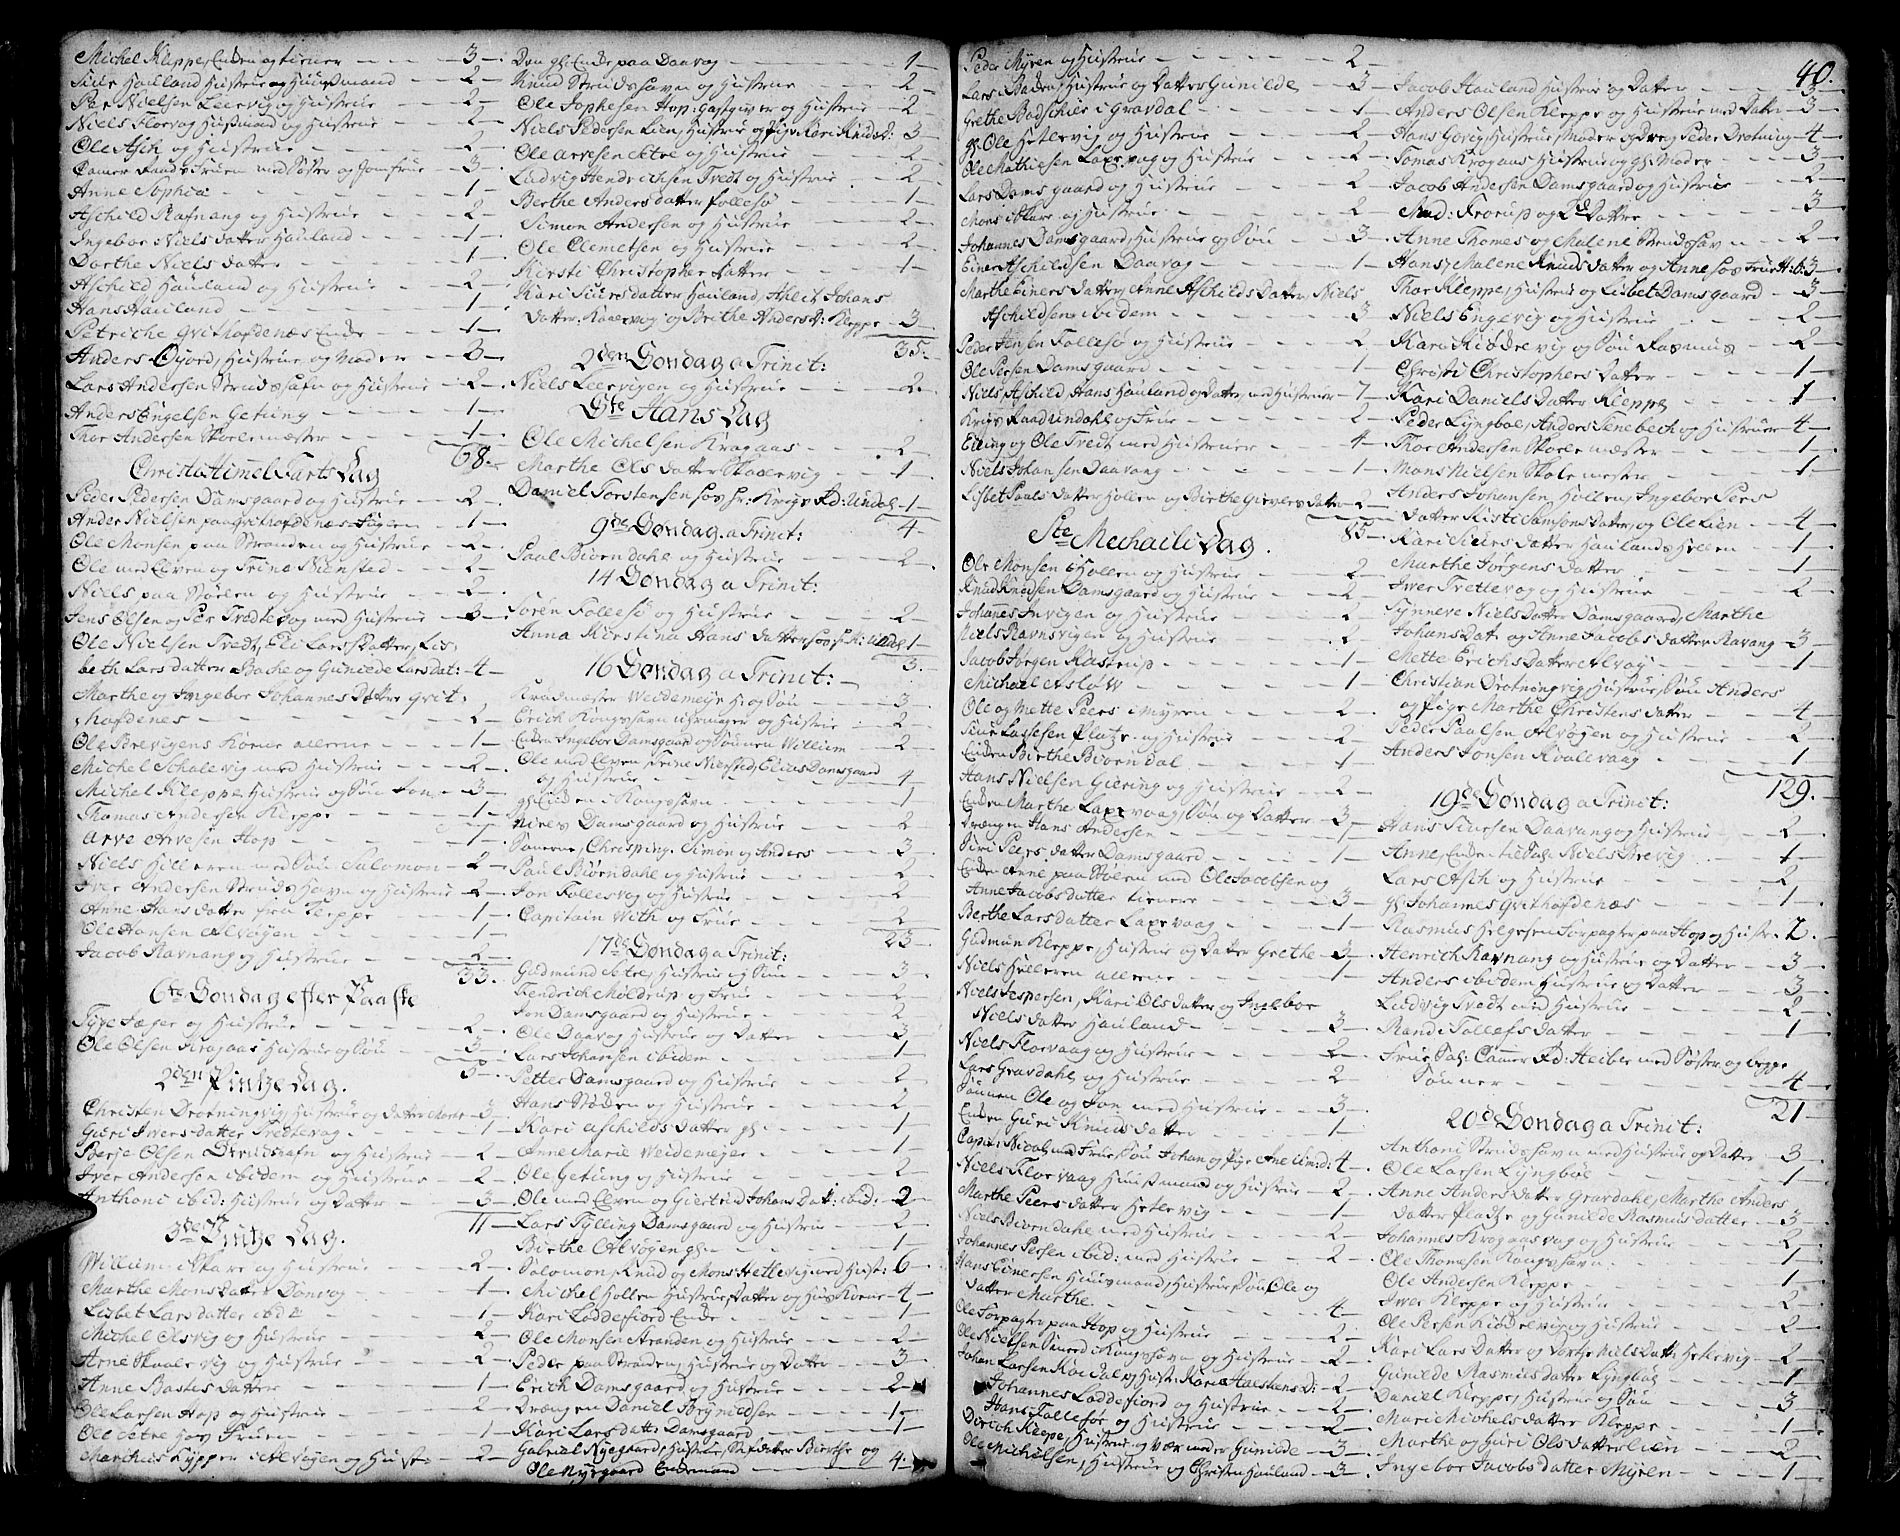 Michel Kleppe, Enden og tiener - - - 3 -
Siur Hauland Hustrue og Huusmand - - 2 -
Per Nielsen Leervig og Hustrue - - 2 -
Niels Florvog Husmand og Hustrue - - 2 -
Ole Ask og Hustrue - - 2 -
med Søster og Jomfrue - 3 -
Anne Sophia - - 1 -
Aschild Rafnang og Hustrue - - 2 -
Ingebor Niels datter Hauland - - 1 -
Dorthe Niels datter - - 1 -
Aschild Hauland og Hustrue - - 2 -
Hans Hauland - - 1 -
Petriche Gvithofdenæs Enke - - 1 -
Anders Øjord, Hustrue og Moder - - 3 -
Lars Andersen Struds hafn og Hustrue - 2 -
Anders Engelsen Getung - - 1 -
Thor Andersen Skolemæster - - 1 -
68 -
Christi Himmel Farts Dag
Peder Pedersen Damsgaard og Hustrue - 2 -
Ander Nielsen paa Gvithofdenæs - 1 -
Ole Monsen paa Stranden og Hustrue - 2 -
Ole med Eeven og Trine Nienstad - 2 -
Niels paa Støelen og Hustrue - - 2 -
Jens Olsen og Per Tredtevog med Hustrue 3 -
Ole Nielsen Tvedt, Eli Larsdatter, Lis
beth Larsdatter Bache og Gunilde Larsdat: 4 -
Marthe og Ingebor Johannes Datter Gvit
Hofdenes - - 2 -
Ole Brevigens Kone allene - - 1 -
Michel Schalevig med Hustrue - - 2 -
Michel Kleppe Hustrue og Søn Jon - 3 -
Thomas Andersen Kleppe - - 1 -
Arve Arvesen Hop - - 1 -
Niels Hilleren med Søn Salomon - 2 -
Iver Andersen Struds Havn og Hustrue 2 -
Anne Hans datter fra Kleppe - - 1 -
Ole Hansen Alvøjen - - 1 -
Jacob Ravnang og Hustrue - - 2 -
33.
6te Søndag efter Paaske
Tyge Jæger og Hustrue - - 2 -
Ole Olsen Kragaas Hustrue og Søn - 3 -
5 -
2den Pintze Dag.
Christen Drotningvig, Hustrue og datter Marte 3 -
Guri Ivers datter Tredtevog - - 1 -
Berje Olsen Strudshafn og Hustrue - 2 -
Iver Andersen ibidem og Hustrue - 2 -
Anthoni ibid: Hustrue og Datter - - 3 -
11 -
3de Pintze Dag.
Willum i Skare og Hustrue - - 2 -
Marthe Monsdatter Donvog - - 1 -
Lisbet Larsdatter ibd - - 1 -
Michel Olsvig og Hustrue - - 2 -
Arne Skaalevig og Hustrue - - 2 -
Anne Bastes datter - - 1 -
Ole Larsen Hop og Hustrue - - 2 -
Ole Setre hos Fruen - - 1 -
Marthias Kypper i Alvøjen og Hust: - 2 -

Den gl. Enke paa Daavog - - 1 -
Knud Strudshavn og Hustrue - - 2 -
Ole Sophesen Hop: Gastgiver og Hustrue - 2 -
Niels Pedersen Lien, Hustrue og Pige Kari Knudsd: 3 -
Ole Arvesen Setre og Hustrue - - 2 -
Ludvig Hendrichsen Tvedt og Hustrue - 2 -
Berthe Anders datter Follesø - - 1 -
Simon Andersen og Hustrue - - 2 -
Ole Clemetsen og Hustrue - - 2 -
Kirsti Christopher datter - - 1 -
Kari Siursdatter Hauland, Ahlit Johans
datter Kaarevog og Brithe Andersd: Kleppe - 3 -
35 -
2den Søndag a Trinit:
Niels Leervigen og Hustrue - - 2 -
Ste Hans Dag
Ole Michelsen Kragaas - - 2 -
Marthe Ols datter Skaalevig - - 1 -
Daniel Torstensen hos Hr. Krigs Rd: Undal - 1 -
4 -
9de Søndag a Trinit:
Paul Biørndahl og Hustrue - - 2 -
14 Søndag a Trinit:
Søren Follesø og Hustrue - - 2 -
Anna Kirstina Hans datter hos 1 -
3 -
16 Søndag a Trinit:
Kradmester Weidemejer og Søn - - 3 -
Erich Kongshavn og Hustrue - 2 -
Enken Ingebor Damsgaard og Sønnen Willum 2 -
Ole med Eeven Trine Niensted, Elias Damsgaard
og Hustrue - - 4 -
gl. Enken i Kongshavn - - 1 -
Niels Damsgaard og Hustrue - - 2 -
Sønnerne, Chrisping, Simon og Anders - 3 -
Paul Biørndahl og Hustrue - - 2 -
Jon Follesvog og Hustrue - - 2 -
Capitain With og Frue - - 2 -
23 -
17de Søndag a Trinit:
Gudmund Setre, Hustrue og Søn - - 3 -
Fendrich Møldrup og Frue - - 2 -
Jon Damsgaard og Hustrue - - 2 -
Ole Daavog Hustrue og Datter - - 3 -
Lars Johansen ibidem - - 1 -
Petter Damsgaard og Hustrue - - 2 -
Hans Støden og Hustrue - - 2 -
Kari Aschilds datter gl. - - 1 -
Anne Marie Weidemejer - - 1 -
Ole Getung og Hustrue - - 2 -
Ole med Eeven og Giertrud Johans Dat: ibid: 2 -
Lars Tylling Damsgaard og Hustru - 2 -
Birthe Alvøjen gl. - - 1 -
Salomon, Knud og Mons Hetlevig med Hust: 6 -
Michel Holten Hustrue, Datter og Huskone - 4 -
Kari Loddefiord Enke - - 1 -
Ole Monsen Stranden og Hustrue - - 2 -
Peder paa Stranden, Hustrue og Datter - 3 -
Erich Damsgaard og Hustrue - - 2 -
Drængen Daniel Torgnieldsen - - 1 -
Kari Larsdatter Damsgaard - - 1 -
Gabriel Nyegaard, Hustrue, Sl: datter Berthe og
Ole Nyegaard Enkemand - - 4 -

Peder Myren og Hustrue - - 2 -
Lars i Baden, Hustrue og Datter Gunilde - 3 -
Grethe Badskier i Gravdal - - 1 -
gl. Ole Hetlevig og Hustrue - - 2 -
Ole Mathiesen Laxevaag og Hustrue - 2 -
Lars Damsgaard og Hustrue - - 2 -
Mons i Skare og Hustrue - - 2 -
Johannes Damsgaard, Hustrue og Søn - 3 -
Einer Aschildsen Daavog - - 1 -
Marthe Einers datter, Anne Aschilds Datter, Niels
Aschildsen ibidem - - 3
Peder Jensen Follesø og Hustrue - - 2
Ole Persen Damsgaard - - 1 -
Niels, Aschild, Hans Hauland og Datter med Hustruer 7 -
Krigs Raad Undahl og Frue - - 2
Elling og Ole Tvedt med Hustruer - - 4 -
Niels Johansen Daavang - - 1 -
Lisbet Pauls datter Hollen og Birthe Gievlers datter 2 -
85 -
Ste Mechaili Dag.
Ole Monsen i Hollen og Hustrue - - 2 -
Knud Knudsen Damsgaard og Hustrue - 2 -
Johannes Invigen og Hustrue - - 2
Niels Ravnsvigen og Hustrue - - 2 -
Jacob Jørgen Kastrup - - 1 -
Michael Asløw - - 1 -
Ole og Mette Peers i Myren - - 2 -
Siur Lassesen Platz og Hustrue - - 2
Enken Birthe Biørndal - - 1 -
Hans Nielsen Giering og Hustrue - - 2 -
Enken Marthe Laxevaag, Søn og Datter - 3 -
Drængen Hans Andersen - - 1 -
Siri Peers datter Damsgaard - - 1 -
Enken Anne paa Støelen med Ole Jacobsen og
Anne Jacobsdatter tienere - - 3 -
Berthe Larsdatter Laxevaag - - 1 -
Gudmun Kleppe, Hustrue og Datter Grethe - 3 -
Niels Hilleren allene - - 1 -
Niels Jespersen, Kari Ols datter og Ingebor
Niels datter Hauland - - 3 -
Niels Florvaag og Hustrue - - 2 -
Lars Gravdahl og Hustrue - - 2
Sønnen Ole og Jon med Hustrue - - 3 -
Enken Guri Knuds datter - - 1 -
Capit: Nicol, med Frue, Søn Johan og Pige 4 -
Niels Florvaag Huusmand og Hustrue - 2 -
Marthe Peers datter Hetlevig - - 1 -
Niels Biørndahl med Hustrue - - 2 -
Johannes Persen ibid: med Hustrue - 2 -
Hans Einersen Huusmand, Hustrue, Søn Ole og
datter Marthe - - 4 -
Ole Forpagter paa Hop og Hustrue - 2 -
Ole Nielsen Smed i Kongshavn og Hustrue - 2 -
Johan Larsen Kaedal og Hust: Karie Halstensd: 2 -
Johannes Loddefiord og Hustrue - 2 -
Hans Follesøe og Hustrue - - 2 -
Dirich Kleppe, Hustrue og Værmoder Gunilde - 3 -
Ole Michelsen, Hustrue og Christen Hauland - 3 -

40.
Jacob Hauland Hustrue og Datter - - 3 -
Anders Olsen Kleppe og Hustrue med Datter 3 -
Hans Govig Hustrue, Moder og Dreng Peder Drotning 4 -
Tomas Kragaas Hustrue og gl. Moder - 3 -
Jacob Andersen Damsgaard og Hustrue - 2 -
Mad: Frorup og 2de Datter - - 3
Anne Thomes og Malene Strudshavn - 2 -
Hans, Malene Knuds datter og Anne hos Frue H: 3 -
Thor Kleppe, Hustrue og Lisbet Damsgaard - 3 -
Niels Engevig og Hustrue - - 2 -
Kari Kiddrevig og Søn Rasmus - - 2 -
Christi Christophers Datter - - 1 -
Kari Daniels Datter Kleppe - - 1
Peder Lyngboe, Anders Tenebech og Hustruer 4 -
Thor Andersen Skolemæster - - 1 -
Mons Nielsen Skolemester - - 1 -
Anders Johansen Hollen, Ingebor Peers
datter Kirsti Samsons datter, og Ole Lien - 4 -
Kari Siurs datter Haulands Hollen - - 1 -
Marthe Jørgens datter - - 1 -
Iver Trettevog og Hustrue - - 2 -
Synneve Niels Datter Damsgaard, Marthe
Johans Dat: og Anne Jacobs datter Ravang 3 -
Mette Erichs Datter Alvøj - - 1
Christian Drotningvig, Hustrue, Søn Anders
og Pige Marthe Christens datter - - 4 -
Peder Paulsen Alvøjen og Hustrue - 2
Anders Jonsen Koalevaag - - 1
129.
19de Søndag a Trinit:
Hans Siursen Daavang og Hustrue - 2 -
Anne, Enken til Sal: Niels Brevig - - 1 -
Lars Ask og Hustrue - - 2
gl. Johannes Gvithofdenæs - - 1 -
Rasmus Helgesen Forpagter paa Hop og Hust: 2 -
Henrich Ravnang og Hustrue og Datter - 3 -
Anders ibidem Hustrue og Datter - - 3 -
Ludvig Tvedt med Hustrue - - 2 -
Randi Tollefs datter - - 1 -
Frue Sal: Camer Rd: Heiber med Søster og begge
Sønner - - 4 -
21 -
20de Søndag a Trinit:
Anthoni Strudshavn med Hustrue og Datter 3 -
Ole Larsen Lyngbøe - - 1 -
Anne Anders datter Gravdahl, Marthe Anders
datter Platze og Gunilde Rasmus datter - 3 -
Johannes Kragaasvog og Hustrue - - 2
Ole Thomesen Kongshavn - - 1 -
Ole Andersen Kleppe - - 1 -
Iver Kleppe og Hustrue - - 2 -
Ole Persen Kiddelvig og Hustrue - - 2 -
Kari Lars Datter og Dorthe Niels Datt: Hetlevig - 2 -
Gunilde Rasmus datter Lyngbøe - - 1
Daniel Kleppe, Hustrue og Søn - - 3
Mari Michels datter Kleppe - - 1
Marthe og Guri Ols datter Lien - - 2 -
Ingebor Jacobs datter Myren - - 1 -